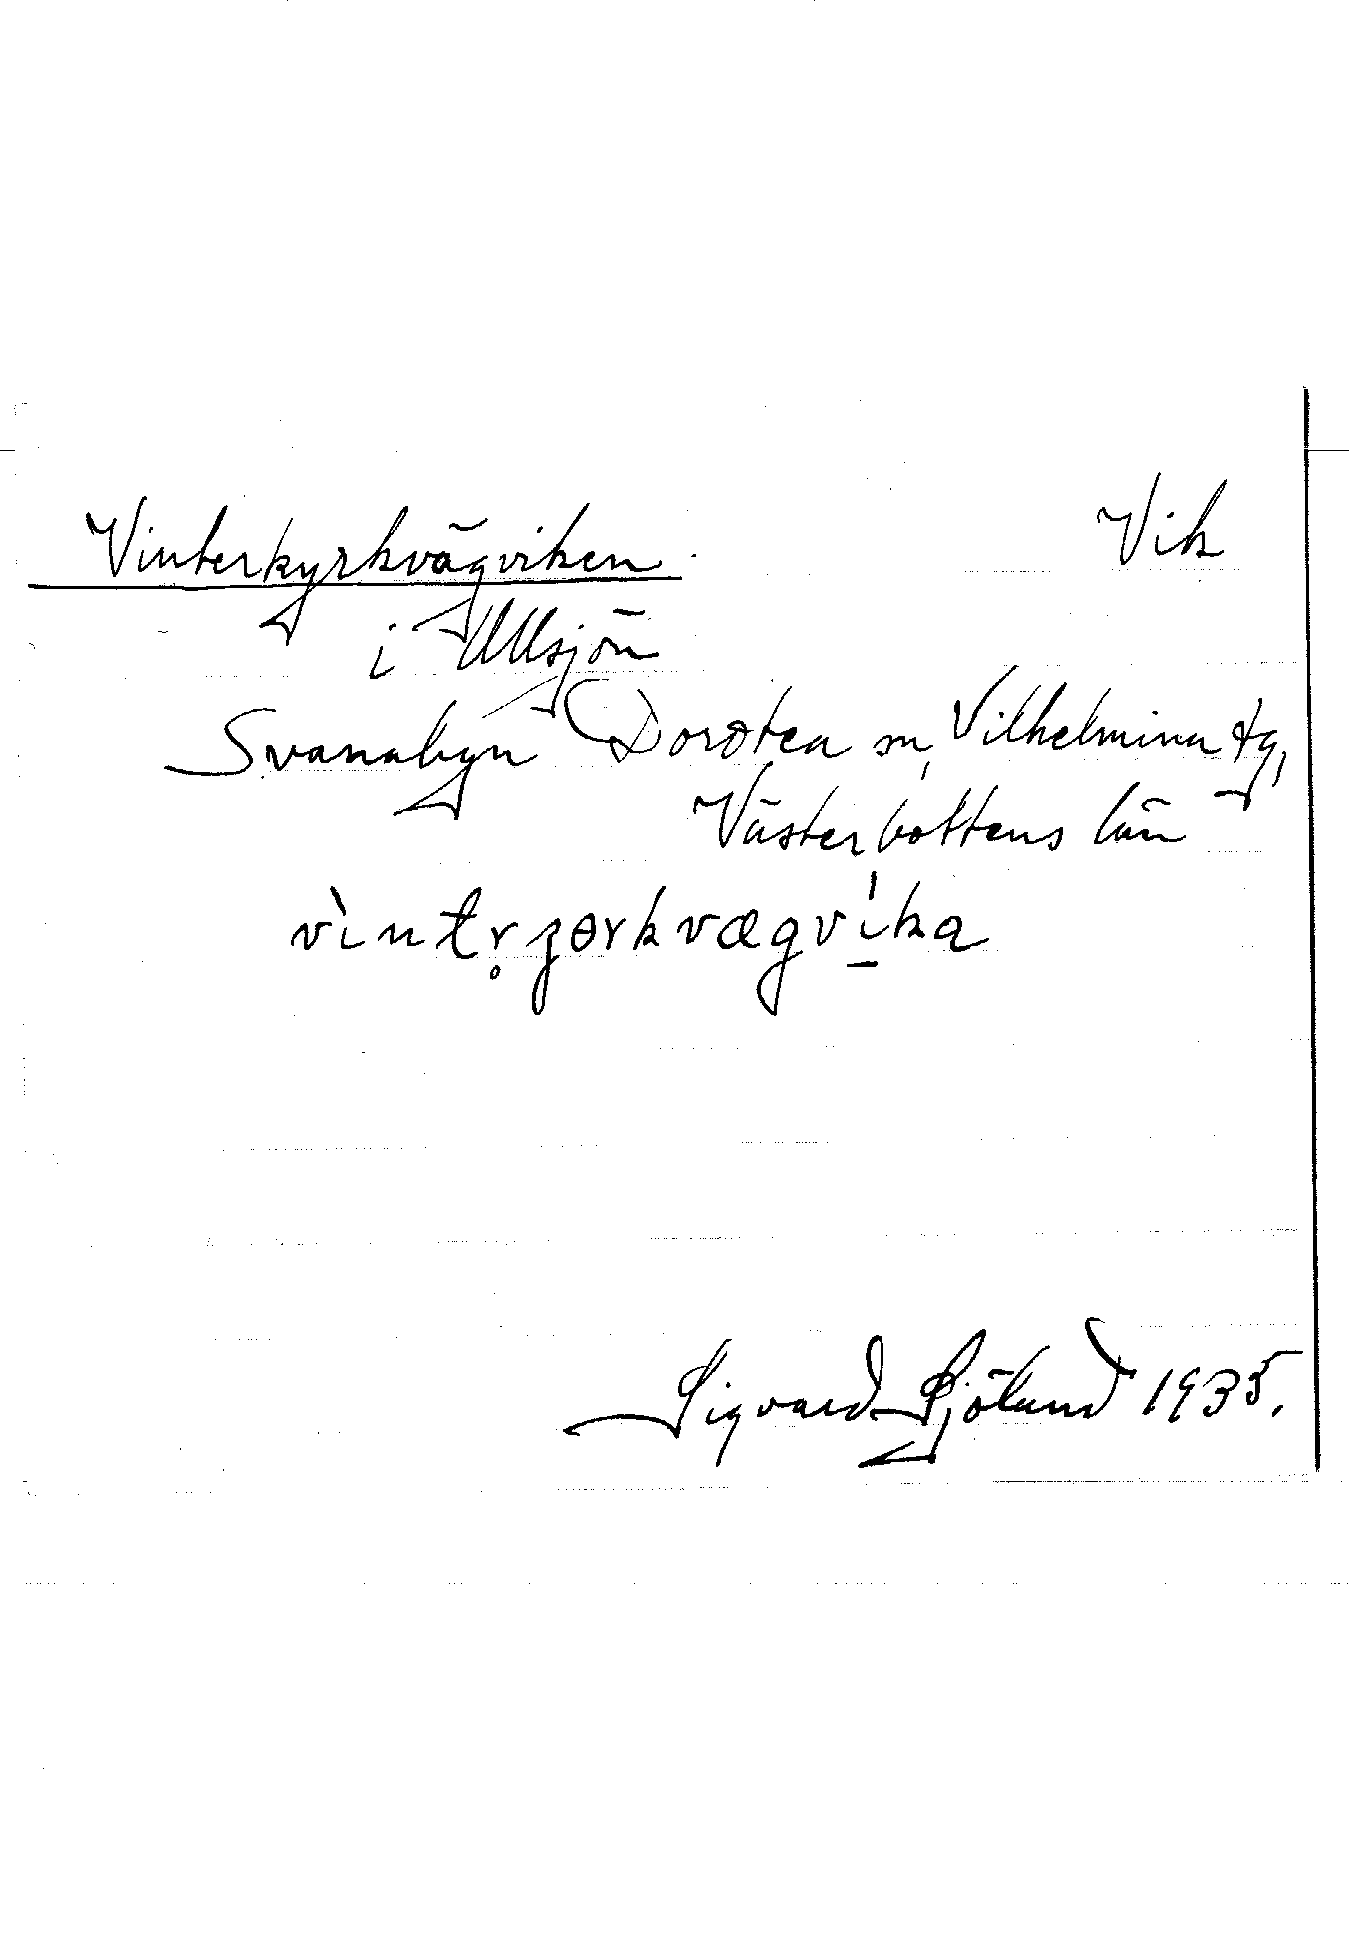 Vinterkyrkvägviken Vik
i Ullsjön
Svanabyn Dorotea sn, Vilhelmina tg,
Västerbottens län
vìntr̥ʒɵrkvægví̱ka
Sigvard Sjölund 1935.